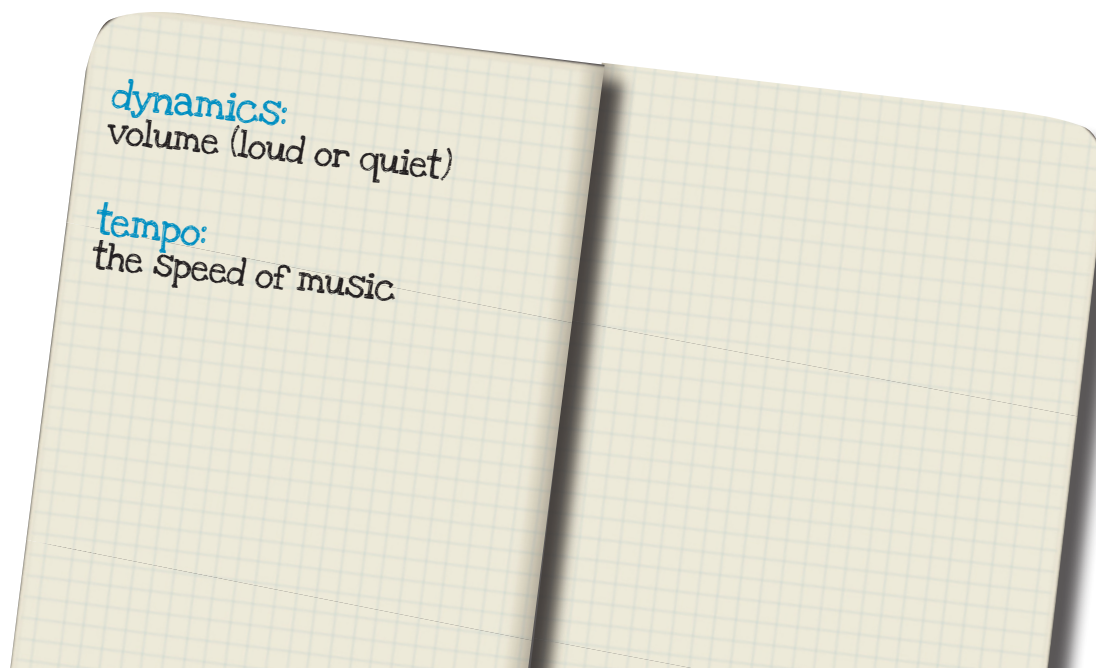 dynamics:
volume (loud or quiet)
tempo:
the speed of music